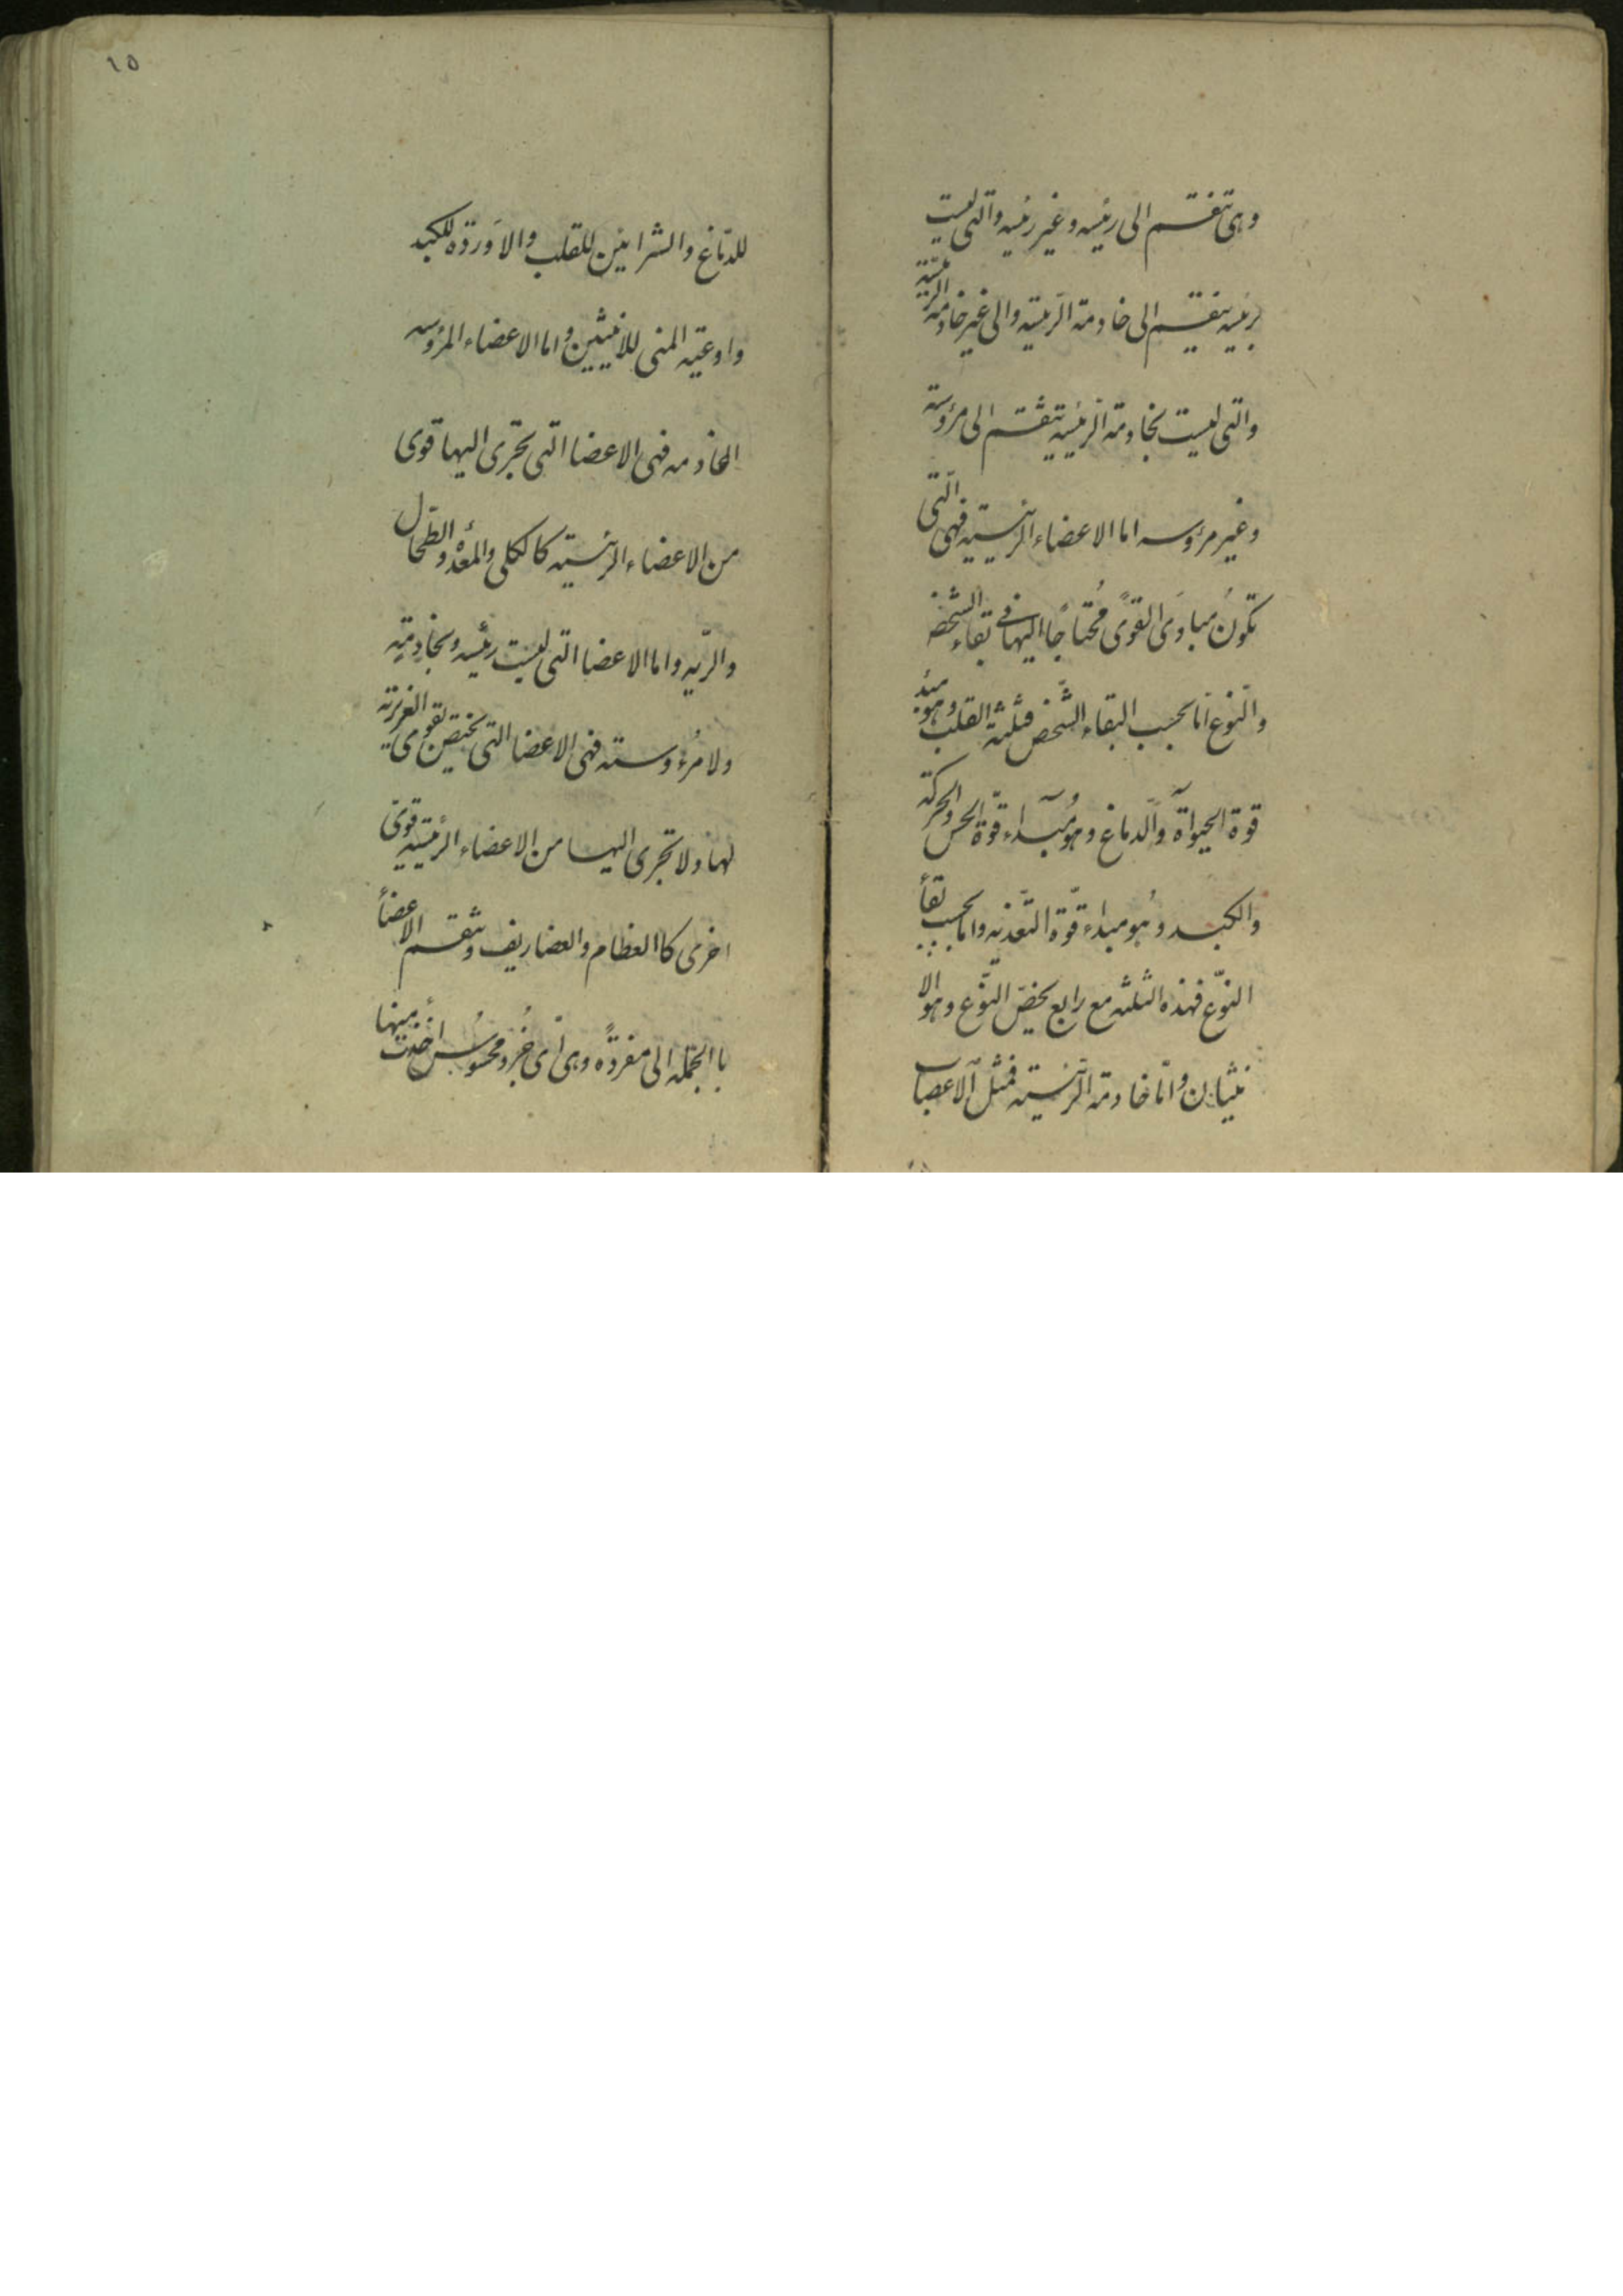 وهى تنقسم الى رئيسه وغير رئيسه والتى ليست
برئيسه ينقسم الى خادمة الرئيسة والى غير خادمة الرئيسة
والتى ليست بخادمة الرئيسة تنقسم الى مرؤسة
وغير مرؤسه اما الاعضاء الرئيسيه فهى التى
تكون مبادى القوى محتاجًا اليها فى بقاء الشخص
والنوع امّا بحسب البقاء الشخص فثلثة القلب وهو مبدء
قوة الحيواة والدماغ وهو مبداء قوة الحس والحركة
والكبد وهو مبداء قوّة التغذيه واما بحسب بقأ
النوّع فهذه الثلثه مع رابع يخصّ النوّع وهو الا
نثيان وامّا خادمة الرئيسيه فمثل الاعصاب
١٥
للدماغ والشرايين للقلب والاوردة للكبد
واوعية المنى للانثيين واما الاعضاء المرؤسه
الخادمه فهى الاعضا التى تجرى اليها قوى
من الاعضاء الرئيسيه كالكلى والمعده والطحال
والريّه واما الاعضا التى ليست رئيسه وبخادمية
ولا مرُءوسته فهى الاعضا التى يختص بقوى الغريزية
لها ولا تجرى اليها من الاعضاء الرئيسيه قوى
اخرى كاالعظام والغضاريف وتنقسم الاعضأ
باالجمله الى مفردًه وهى اى جُزء محسوُس أخذت منها